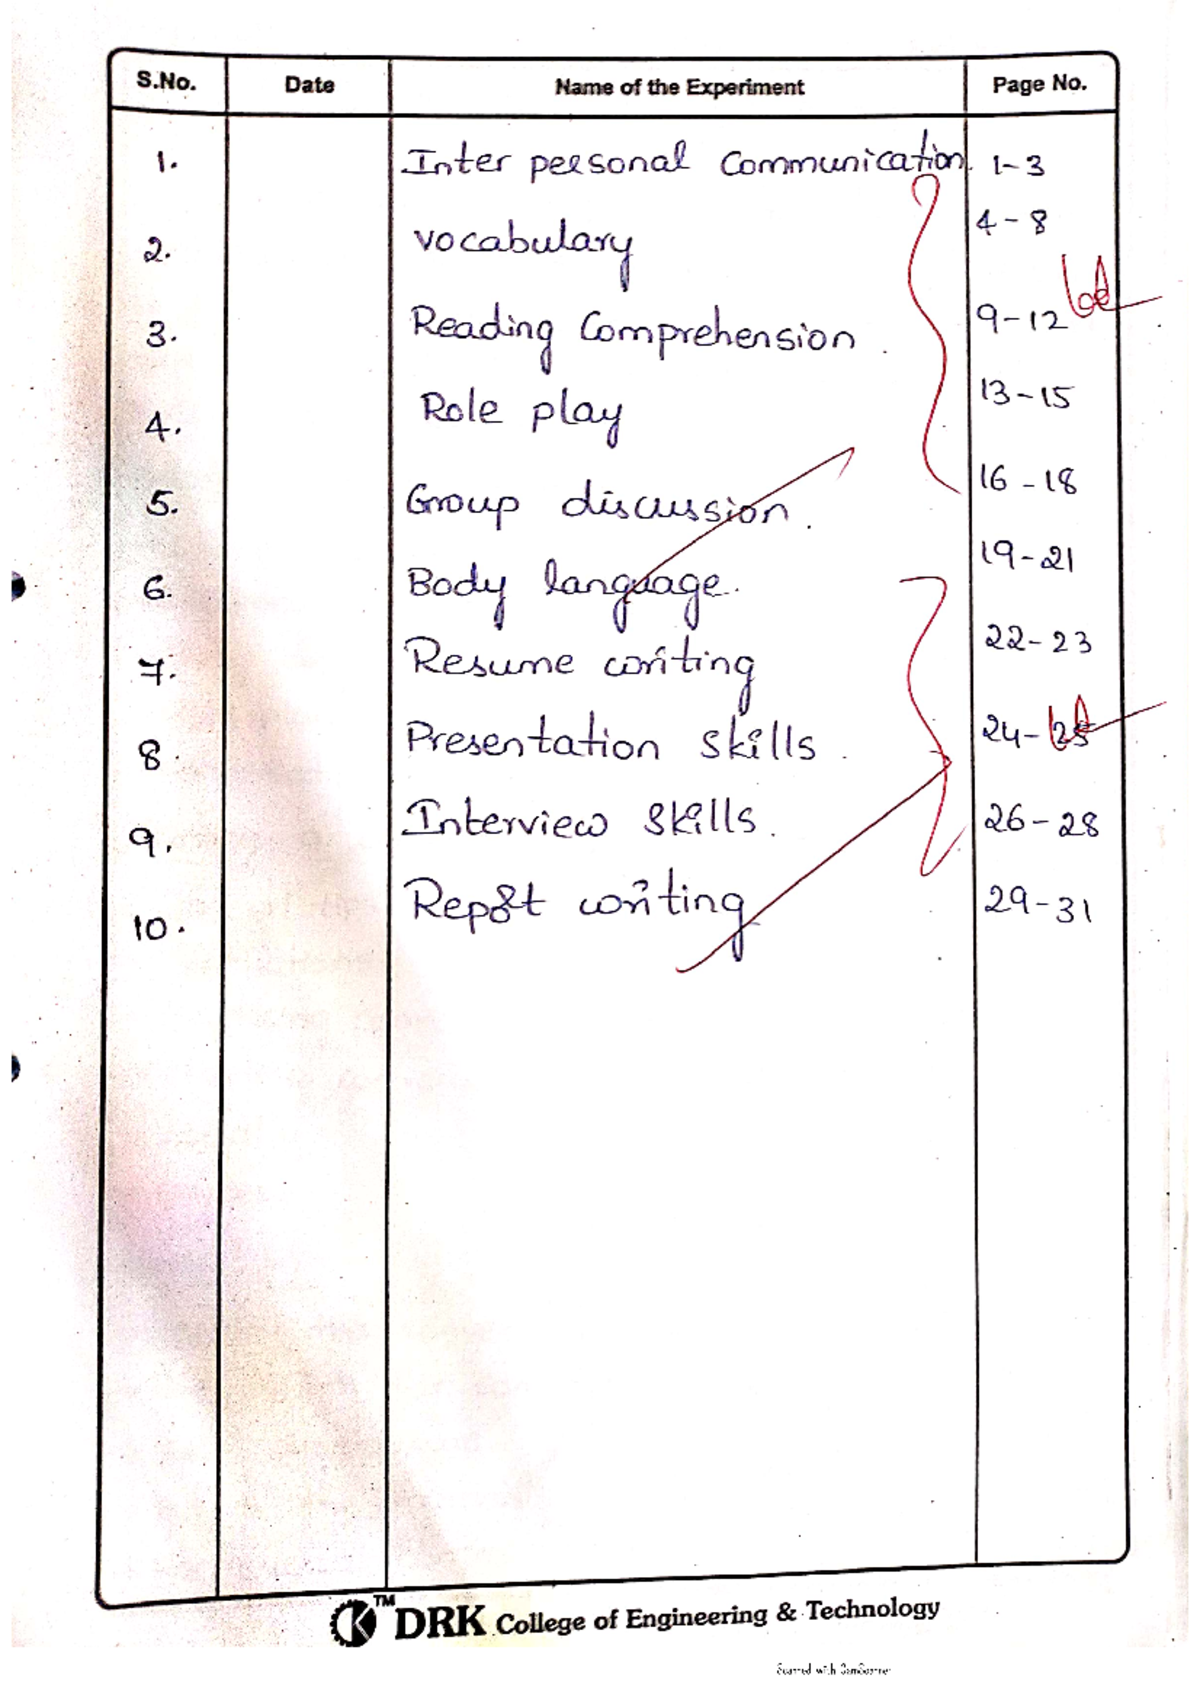 S.No. Date Name of the Experiment Page No.
1. Inter personal Communication. 1-3
2. vocabulary 4-8
3. Reading Comprehension. 9-12
4. Role play 13-15
5. Group discussion. 16-18
6. Body language. 19-21
7. Resume writing 22-23
8. Presentation skills. 24-25
9. Interview skills. 26-28
10. Report writing 29-31
TM DRK College of Engineering & Technology
Scanned with CamScanner